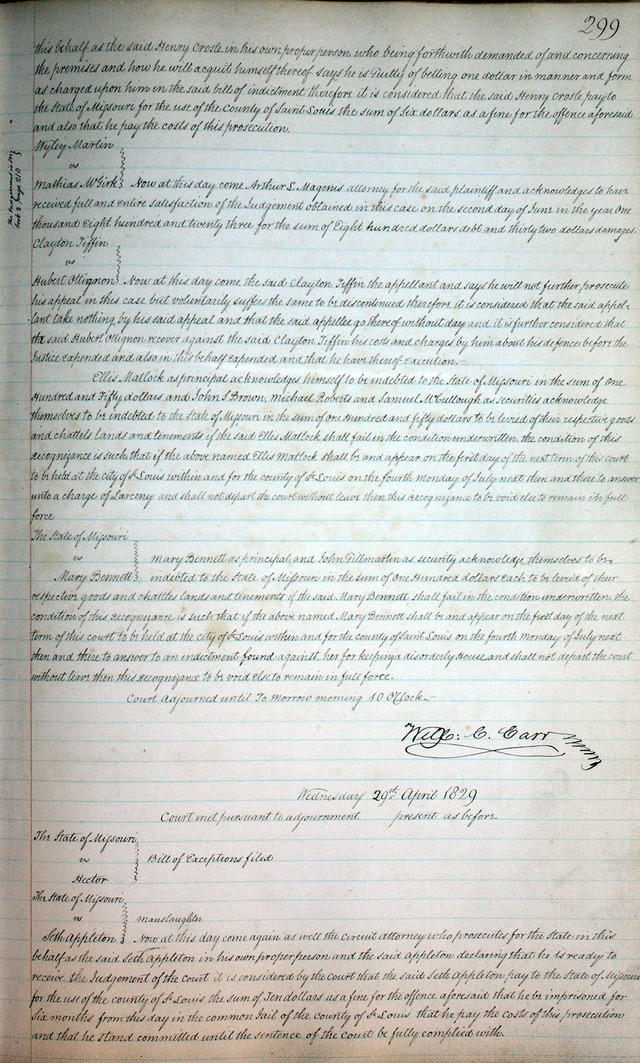 299
this behalf as the said Henry Crosle in his own proper person who being forthwith demanded of and concerning
the premises and how he will acquit himself thereof says he is Guilty of betting one dollar in manner and form
as charged upon him in the said bill of indictment therefore it is considered that the said Henry Crosle pay to
the State of Missouri for the use of the County of Saint Louis the sum of Six dollars as a fine for the offence aforesaid
and also that he pay the costs of this prosecution.
Wyley Martin
vs
Mathias McGirk Now at this day come Arthur L. Magenis attorney for the said plaintiff and acknowledges to have
received full and entire satisfaction of the Judgement obtained in this case on the second day of June in the year One
thousand Eight hundred and twenty three for the sum of Eight hundred dollars debt and thirty two dollars damages.
Clayton Tiffin
vs
Hubert Ollignon Now at this day come the said Clayton Tiffin the appellant and says he will not further prosecute
his appeal in this case but voluntarily suffers the same to be discontinued therefore it is considered that the said appel-
lant take nothing by his said appeal and that the said appellee go thereof without day and it is further considered that
the said Hubert Ollignon recover against the said Clayton Tiffin his costs and charges by him about his defence before the
Justice Expended and also in this behalf Expended and that he have thereof Execution.—
Ellis Matlock as principal acknowledges himself to be indebted to the State of Missouri in the sum of One
Hundred and Fifty dollars and John S Brown, Michael Roberts and Samuel McCullough as securities acknowledge
themselves to be indebted to the State of Missouri in the sum of One Hundred and fifty dollars to be levied of their respective goods
and chattels lands and tenements if the said Ellis Matlock shall fail in the condition underwritten the condition of this
Recognizance is such that if the above named Ellis Matlock shall be and appear on the first day of the next term of this court
to be held at the city of St Louis within and for the county of St Louis on the fourth monday of July next then and there to answer
unto a charge of Larceny and shall not depart the court without leave then this Recognizance to be void else to remain in full
force
The State of Missouri
vs Mary Bennett as principal, and John Fillmartin as security acknowledge themselves to be
Mary Bennett indebted to the State of Missouri in the sum of one Hundred dollars each to be levied of their
respective goods and chattles lands and tenements if the said Mary Bennett shall fail in the condition underwritten the
condition of this Recognizance is such that if the above named Mary Bennett shall be and appear on the first day of the next
term of this court to be held at the city of St Louis within and for the county of Saint Louis on the fourth monday of July next
then and there to answer to an indictment found against her for keeping a disorderly House and shall not depart the court
without leave then this Recognizance to be void else to remain in full force.
Court adjourned until To morrow morning 10 OClock—
Will: C. Carr
Wednesday 29th April 1829
Court met pursuant to adjournment present as before
The State of Missouri
vs Bill of Exceptions filed
Hector
The State of Missouri
vs manslaughter
Seth Appleton Now at this day come again as well the circuit attorney who prosecutes for the State in this
behalf as the said Seth Appleton in his own proper person and the said Appleton declaring that he is ready to
receive the Judgement of the court it is considered by the Court that the said Seth Appleton pay to the State of Missouri
for the use of the county of St Louis the sum of Ten dollars as a fine for the offence aforesaid that he be imprisoned for
Six months from this day in the common Jail of the county of St Louis that he pay the costs of this prosecution
and that he stand committed until the sentence of the Court be fully complied with.